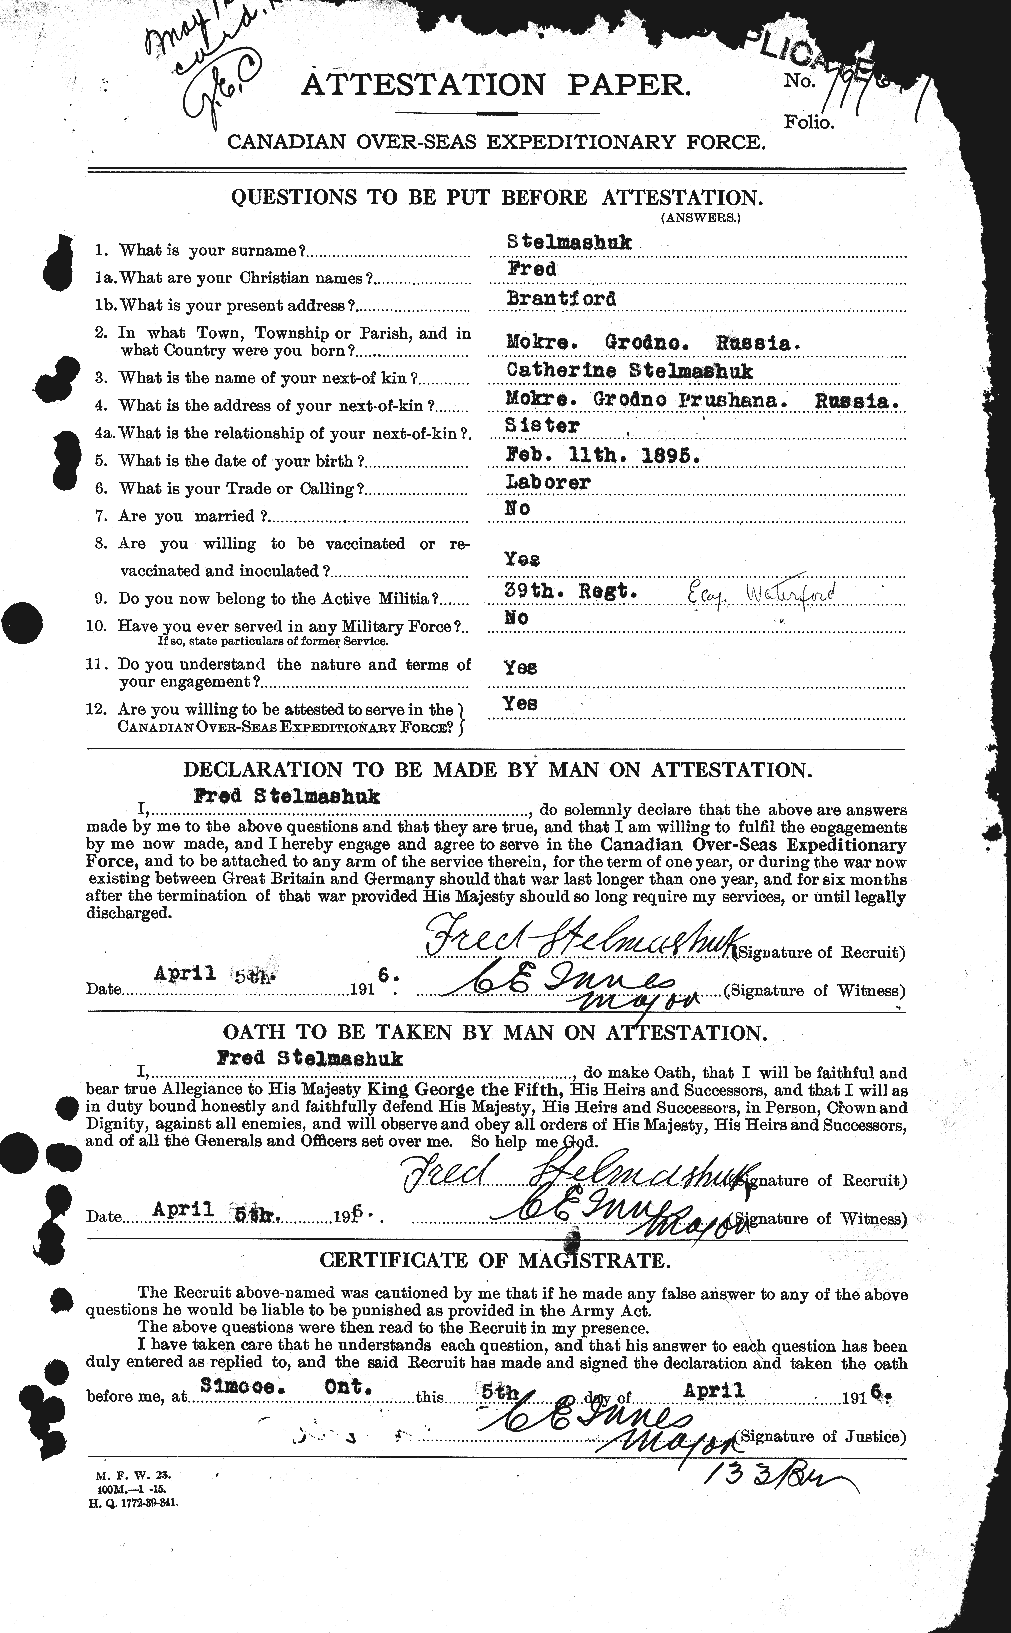 May
card.
J.E.C
ATTESTATION PAPER.
No.
Folio.
CANADIAN OVER-SEAS EXPEDITIONARY FORCE.
QUESTIONS TO BE PUT BEFORE ATTESTATION.
(ANSWERS.)
1. What is your surname? Stelmashuk
1a. What are your Christian names? Fred
1b. What is your present address? Brantford
2. In what Town, Township or Parish, and in
what Country were you born? Mokre. Grodno. Russia.
3. What is the name of your next-of kin? Catherine Stelmashuk
4. What is the address of your next-of-kin? Mokre. Grodno Prushana. Russia.
4a. What is the relationship of your next-of-kin? Sister
5. What is the date of your birth? Feb. 11th. 1895.
6. What is your Trade or Calling? Laborer
7. Are you married? No
8. Are you willing to be vaccinated or re-
vaccinated and inoculated? Yes
9. Do you now belong to the Active Militia? 39th. Regt. Waterford
10. Have you ever served in any Military Force? No
If so, state particulars of former Service.
11. Do you understand the nature and terms of
your engagement? Yes
12. Are you willing to be attested to serve in the
CANADIAN OVER-SEAS EXPEDITIONARY FORCE? Yes
DECLARATION TO BE MADE BY MAN ON ATTESTATION.
I, Fred Stelmashuk, do solemnly declare that the above are answers
made by me to the above questions and that they are true, and that I am willing to fulfil the engagements
by me now made, and I hereby engage and agree to serve in the Canadian Over-Seas Expeditionary
Force, and to be attached to any arm of the service therein, for the term of one year, or during the war now
existing between Great Britain and Germany should that war last longer than one year, and for six months
after the termination of that war provided His Majesty should so long require my services, or until legally
discharged.
Fred Stelmashuk (Signature of Recruit)
Date April 5th. 1916. C E Innes Major (Signature of Witness)
OATH TO BE TAKEN BY MAN ON ATTESTATION.
I, Fred Stelmashuk, do make Oath, that I will be faithful and
bear true Allegiance to His Majesty King George the Fifth, His Heirs and Successors, and that I will as
in duty bound honestly and faithfully defend His Majesty, His Heirs and Successors, in Person, Crown and
Dignity, against all enemies, and will observe and obey all orders of His Majesty, His Heirs and Successors,
and of all the Generals and Officers set over me. So help me God.
Fred Stelmashuk (Signature of Recruit)
Date April 5th. 1916. C E Innes Major (Signature of Witness)
CERTIFICATE OF MAGISTRATE.
The Recruit above-named was cautioned by me that if he made any false answer to any of the above
questions he would be liable to be punished as provided in the Army Act.
The above questions were then read to the Recruit in my presence.
I have taken care that he understands each question, and that his answer to each question has been
duly entered as replied to, and the said Recruit has made and signed the declaration and taken the oath
before me, at Simcoe. Ont. this 5th day of April 1916.
C E Innes Major (Signature of Justice)
133 Bn
M. F. W. 23.
100M.—1 -15.
H. Q. 1772-39-841.